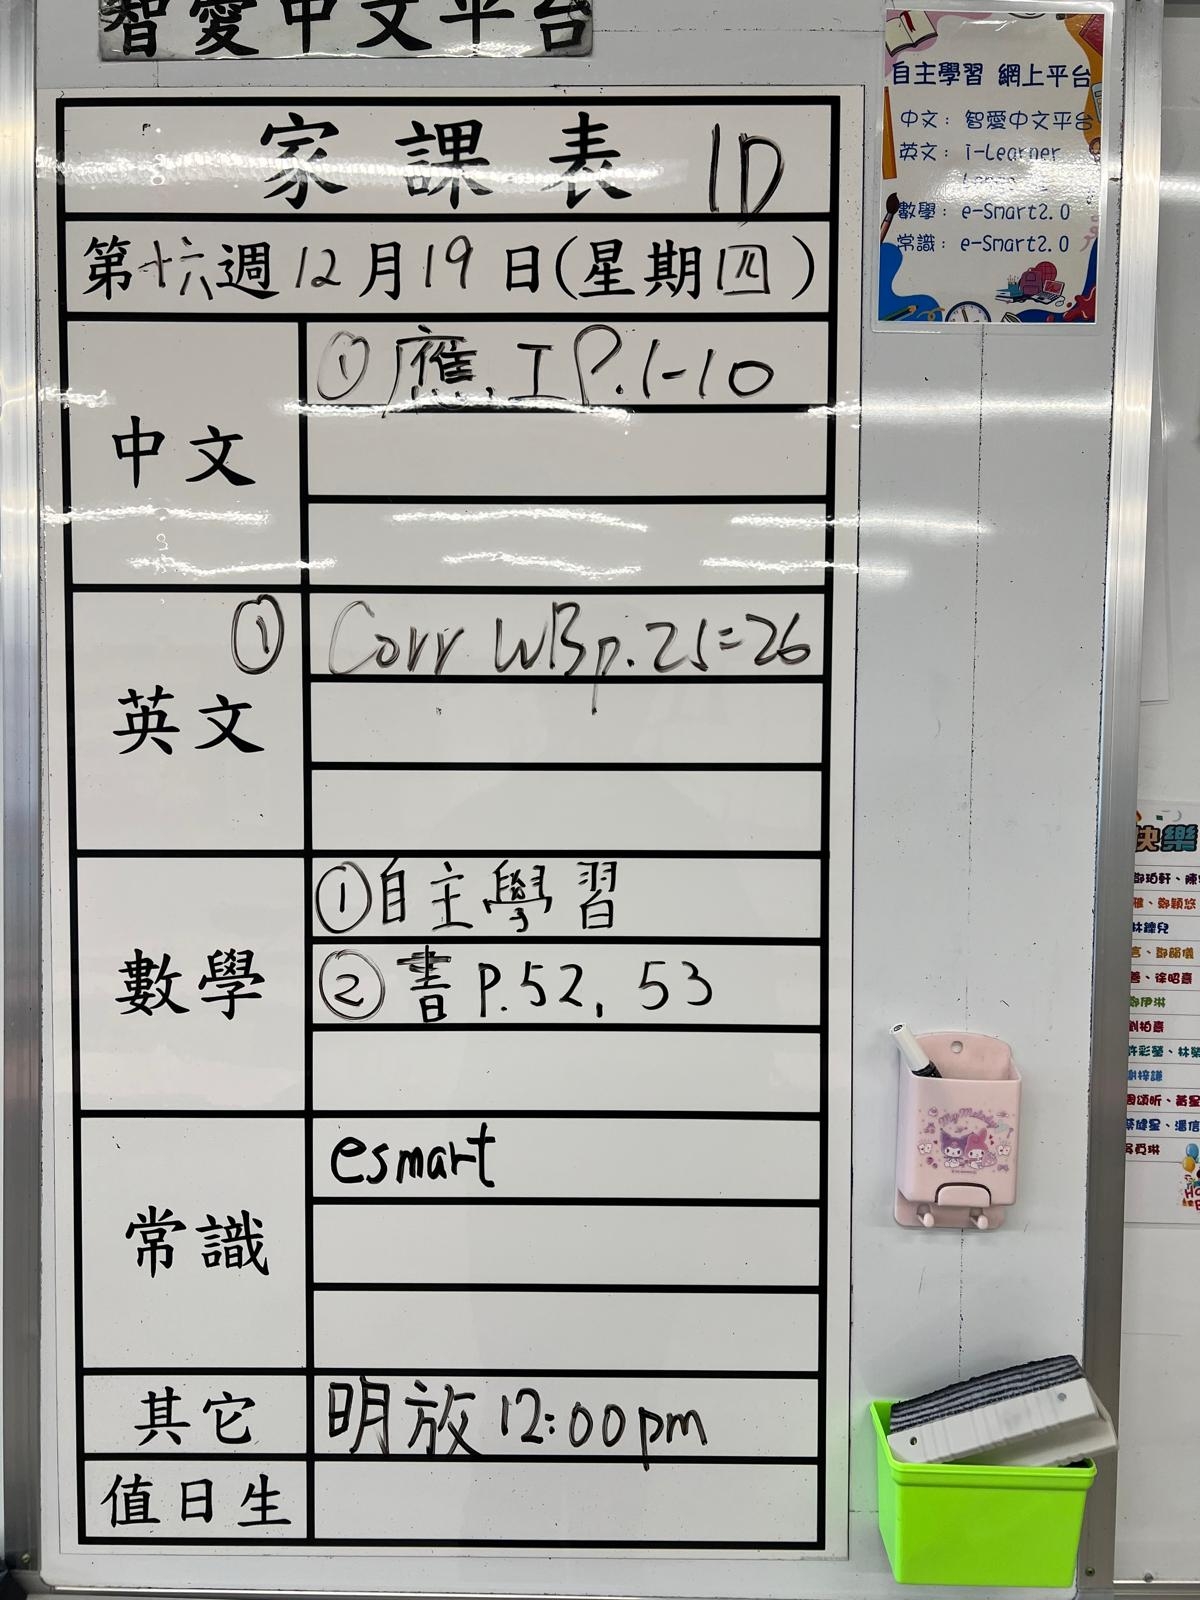 智愛中文平台
家課表 1D
第十六週12月19日(星期四)
中文
① 應.工 P.1-10
英文
① Corr WB p.25-26
數學
①自主學習
②書 P.52, 53
常識
esmart
其它
明放 12:00pm
值日生
自主學習 網上平台
中文：智愛中文平台
英文：i-Learner
數學：e-Smart2.0
常識：e-Smart2.0
My Melody
快樂
鄭穎悠
徐昭熹
鄭伊淋